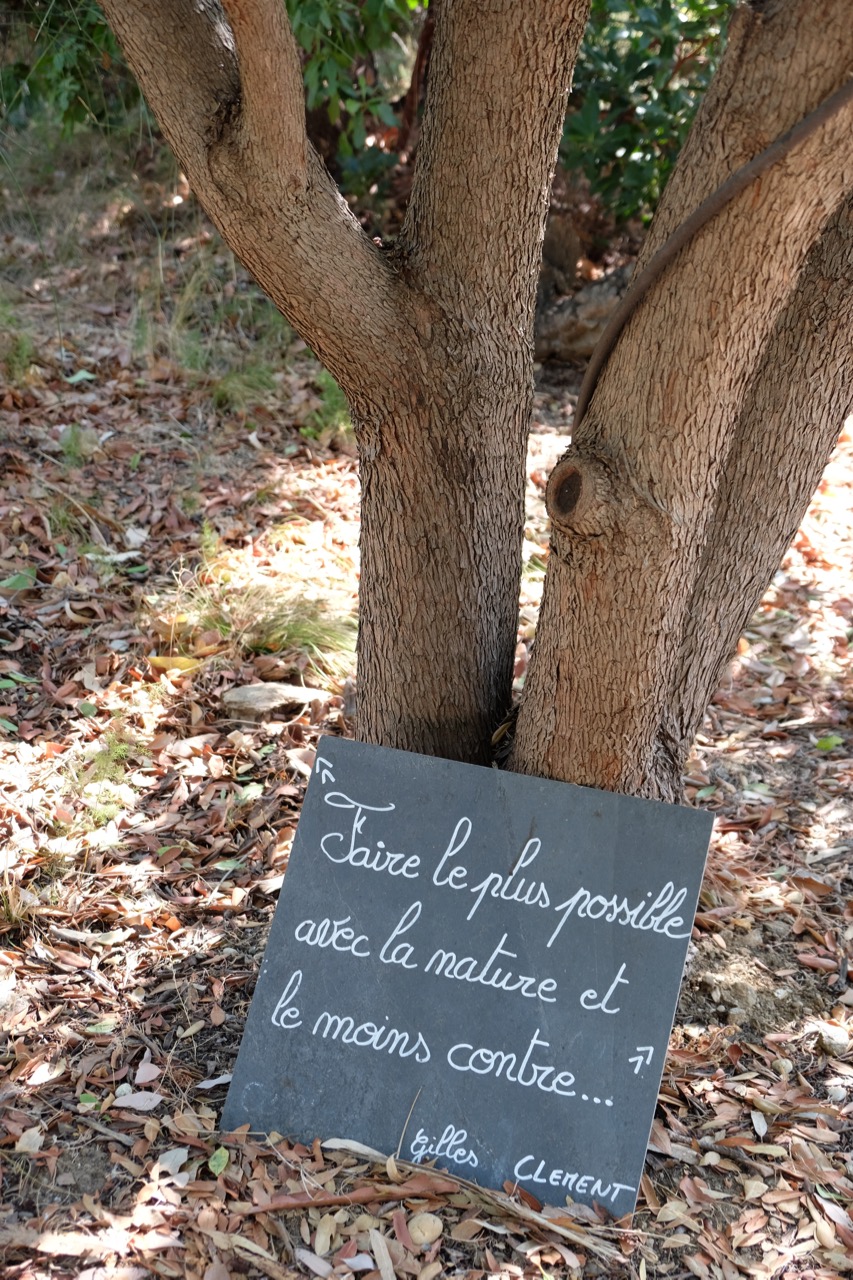 « Faire le plus possible
avec la nature et
le moins contre... »
Gilles CLEMENT